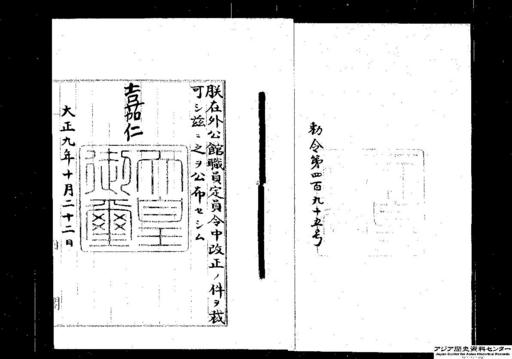 勅令第四百九十五号
朕在外公館職員定員令中改正ノ件ヲ裁
可シ茲ニ之ヲ公布セシム
嘉仁
天皇
御璽
大正九年十月二十二日
アジア歴史資料センター
Japan Center for Asian Historical Records